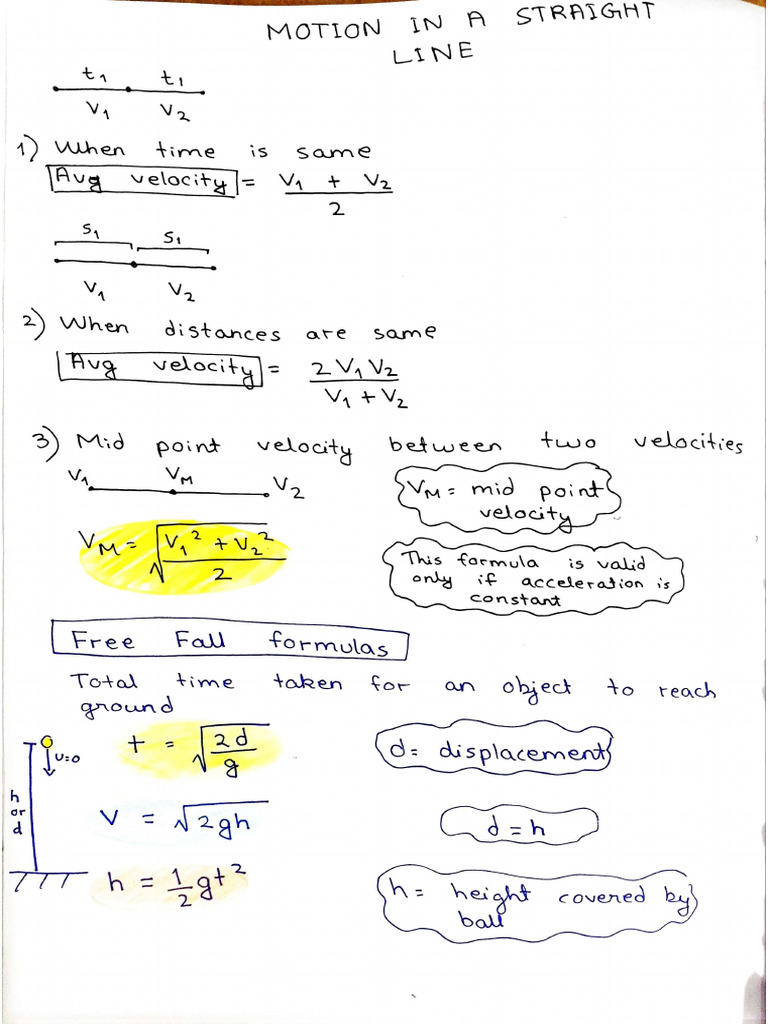 MOTION IN A STRAIGHT
LINE
t₁ t₁
V₁ V₂
1) When time is same
Avg velocity = (V₁ + V₂)/2
S₁ S₁
V₁ V₂
2) When distances are same
Avg velocity = 2V₁V₂/(V₁+V₂)
3) Mid point velocity between two velocities
V₁ V_M V₂
V_M = mid point
velocity
V_M = √((V₁² + V₂²)/2)
This formula is valid
only if acceleration is
constant
Free Fall formulas
Total time taken for an object to reach
ground
u=0
h
or
d
t = √(2d/g)
d = displacement
V = √2gh
d = h
h = 1/2 gt²
h = height covered by
ball